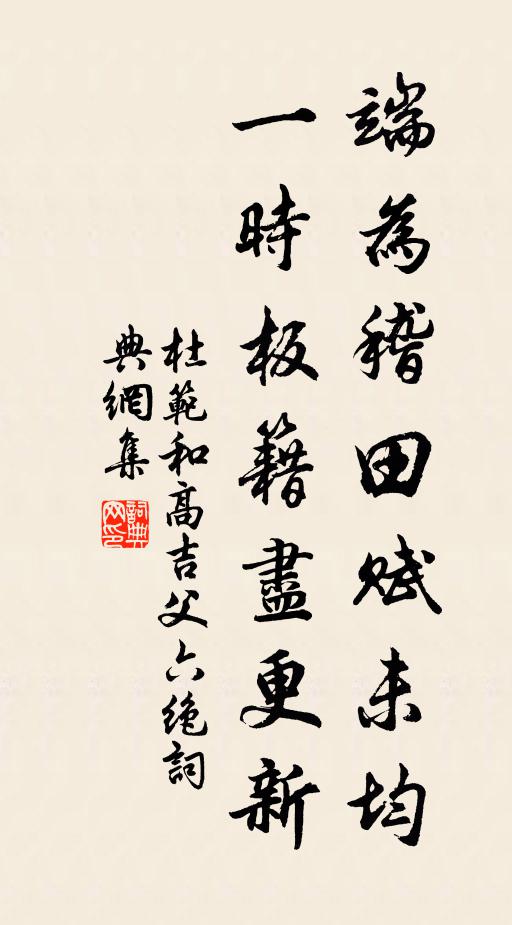 端為稽田賦未均
一時板籍盡更新
杜範和高吉父六絶詞
典網集
詞典
网印